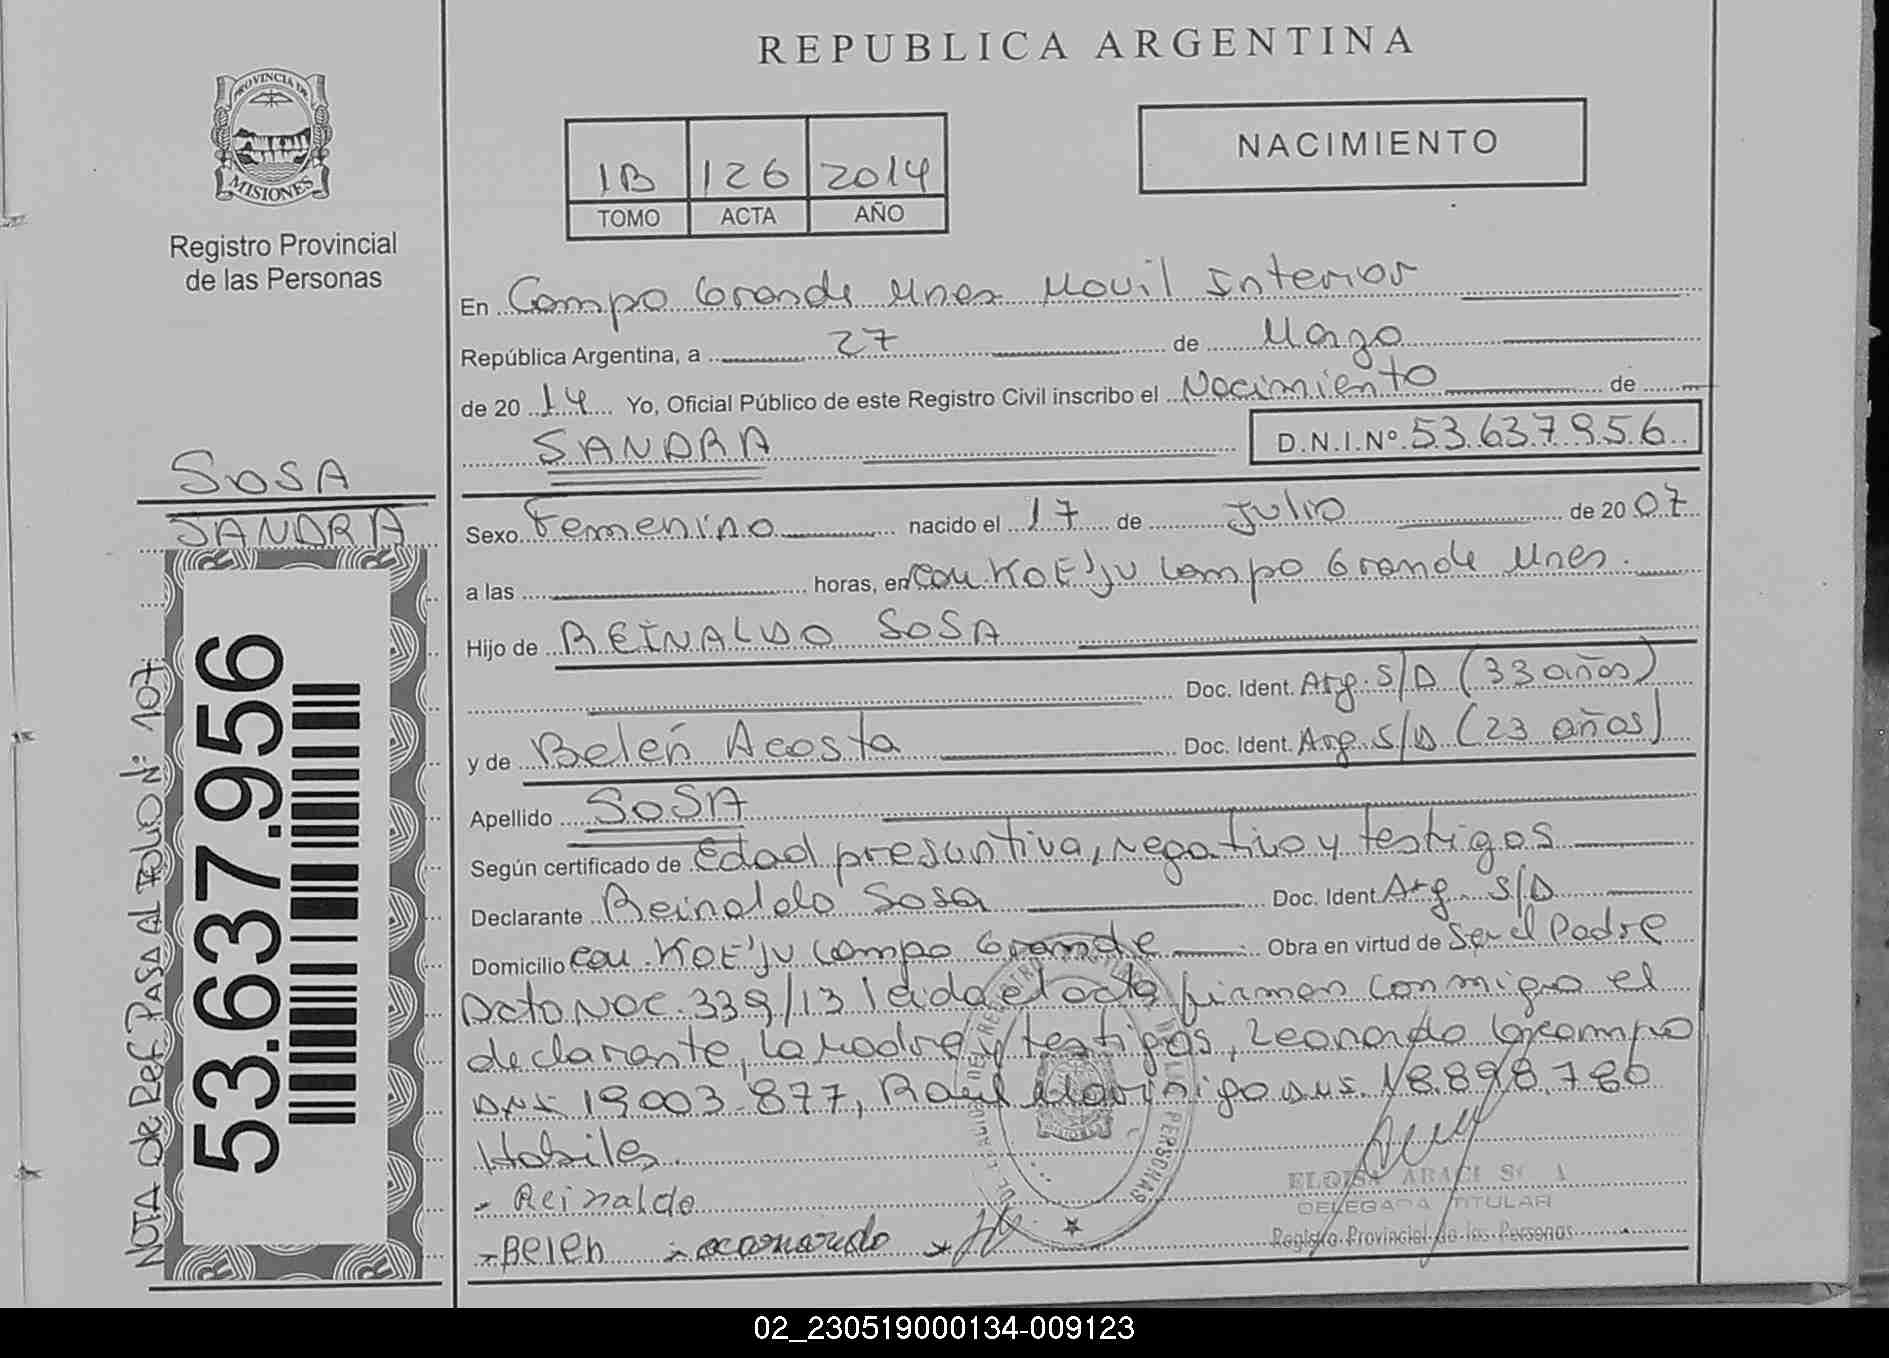 REPUBLICA ARGENTINA
PROVINCIA DE
MISIONES
Registro Provincial
de las Personas
1B 126 2014
TOMO ACTA AÑO
NACIMIENTO
En Campo Grande Mnes Movil Interior
República Argentina, a 27 de Marzo
de 20 14 Yo, Oficial Público de este Registro Civil inscribo el Nacimiento de
SANDRA D.N.I.Nº 53.637.956
SOSA
SANDRA
Sexo Femenino nacido el 17 de Julio de 20 07
a las horas, en Com. KOE'JU Campo Grande Mnes.
Hijo de REINALDO SOSA
Doc. Ident. Arg. S/D (33 años)
y de Belén Acosta Doc. Ident. Arg. S/D (23 años)
Apellido SOSA
Según certificado de Edad presuntiva, negativo y testigos
Declarante Reinaldo Sosa Doc. Ident. Arg. S/D
Domicilio Com. KOE'JU Campo Grande Obra en virtud de Ser el Padre
Dcto Nac. 339/13 leida el acta firman conmigo el
declarante, la Madre y testigos, Leonardo Ocampo
DNI 19003.877, Raul Marinigo DNI. 18.898.786
Habiles.
- Reinaldo
- Belen
ELOISA ARACI SOSA
DELEGADA TITULAR
Registro Provincial de las Personas
53.637.956
NOTA de Ref. PASA AL FOLIO Nº 107
02_230519000134-009123